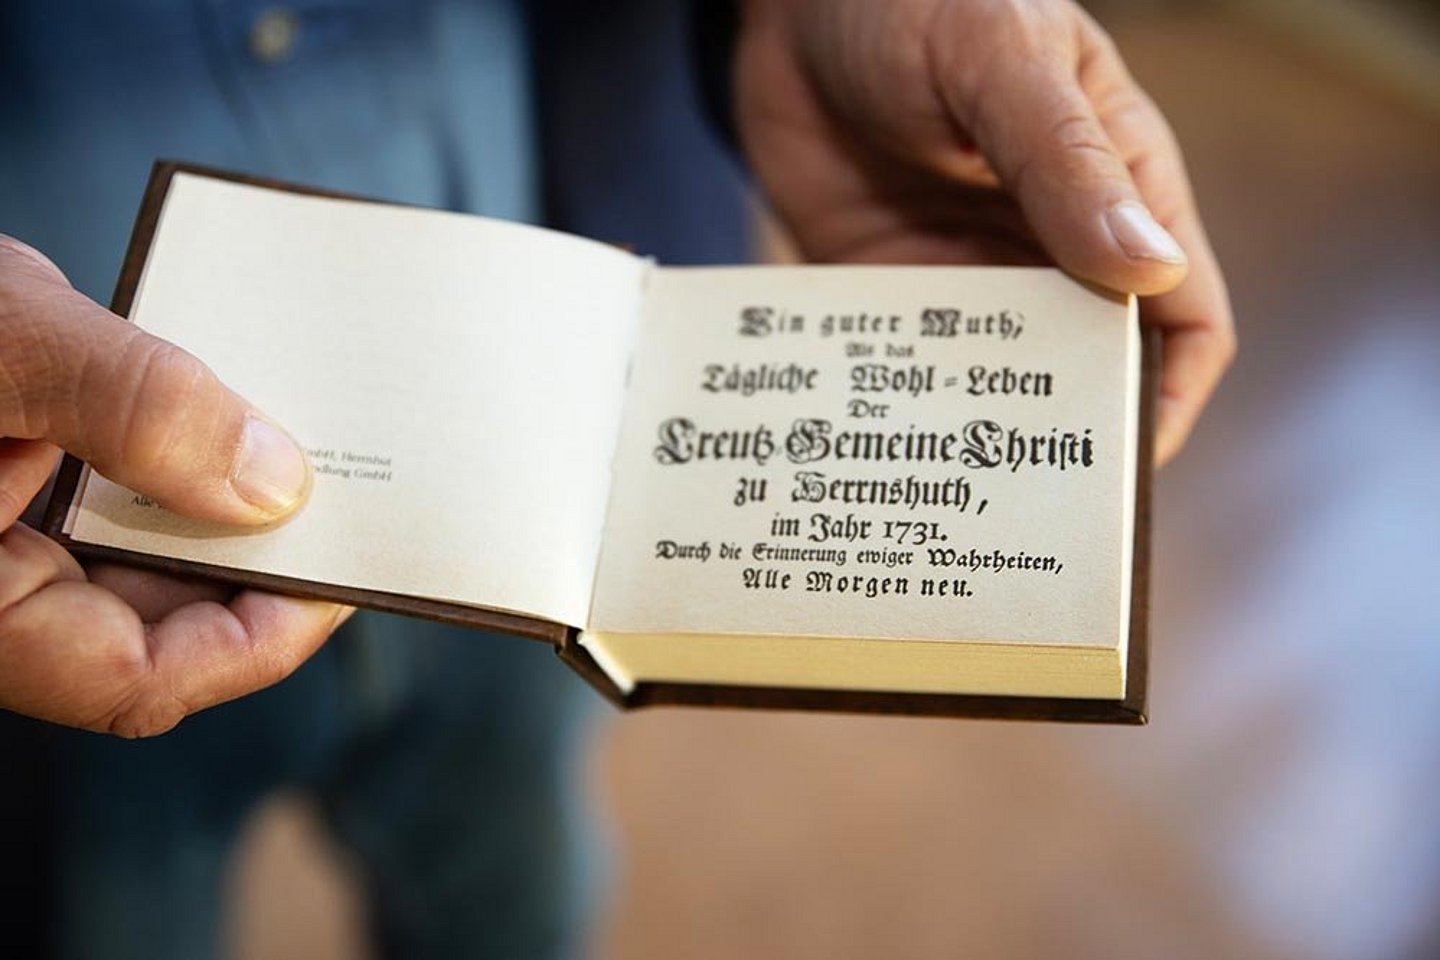 mbH, Herrnhut
ndlung GmbH
Alle
Ein guter Muth,
Als das
Tägliche Wohl-Leben
Der
Creutz-Gemeine Christi
zu Herrnshuth,
im Jahr 1731.
Durch die Erinnerung ewiger Wahrheiten,
Alle Morgen neu.